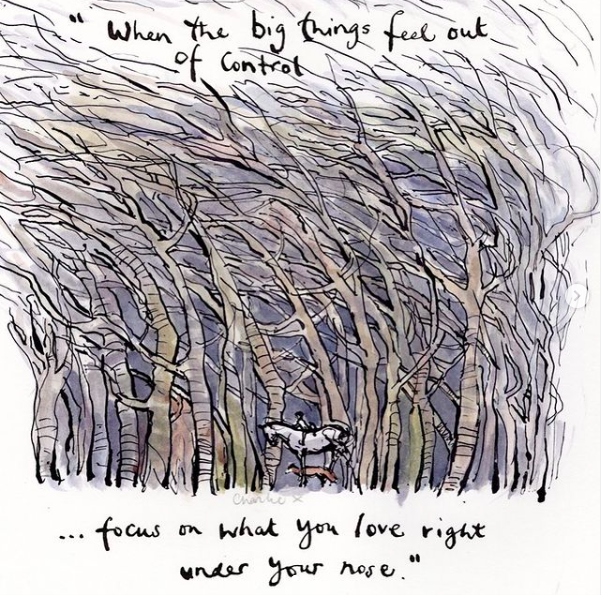 " When the big things feel out
of control
Charlie x
... focus on what you love right
under your nose."